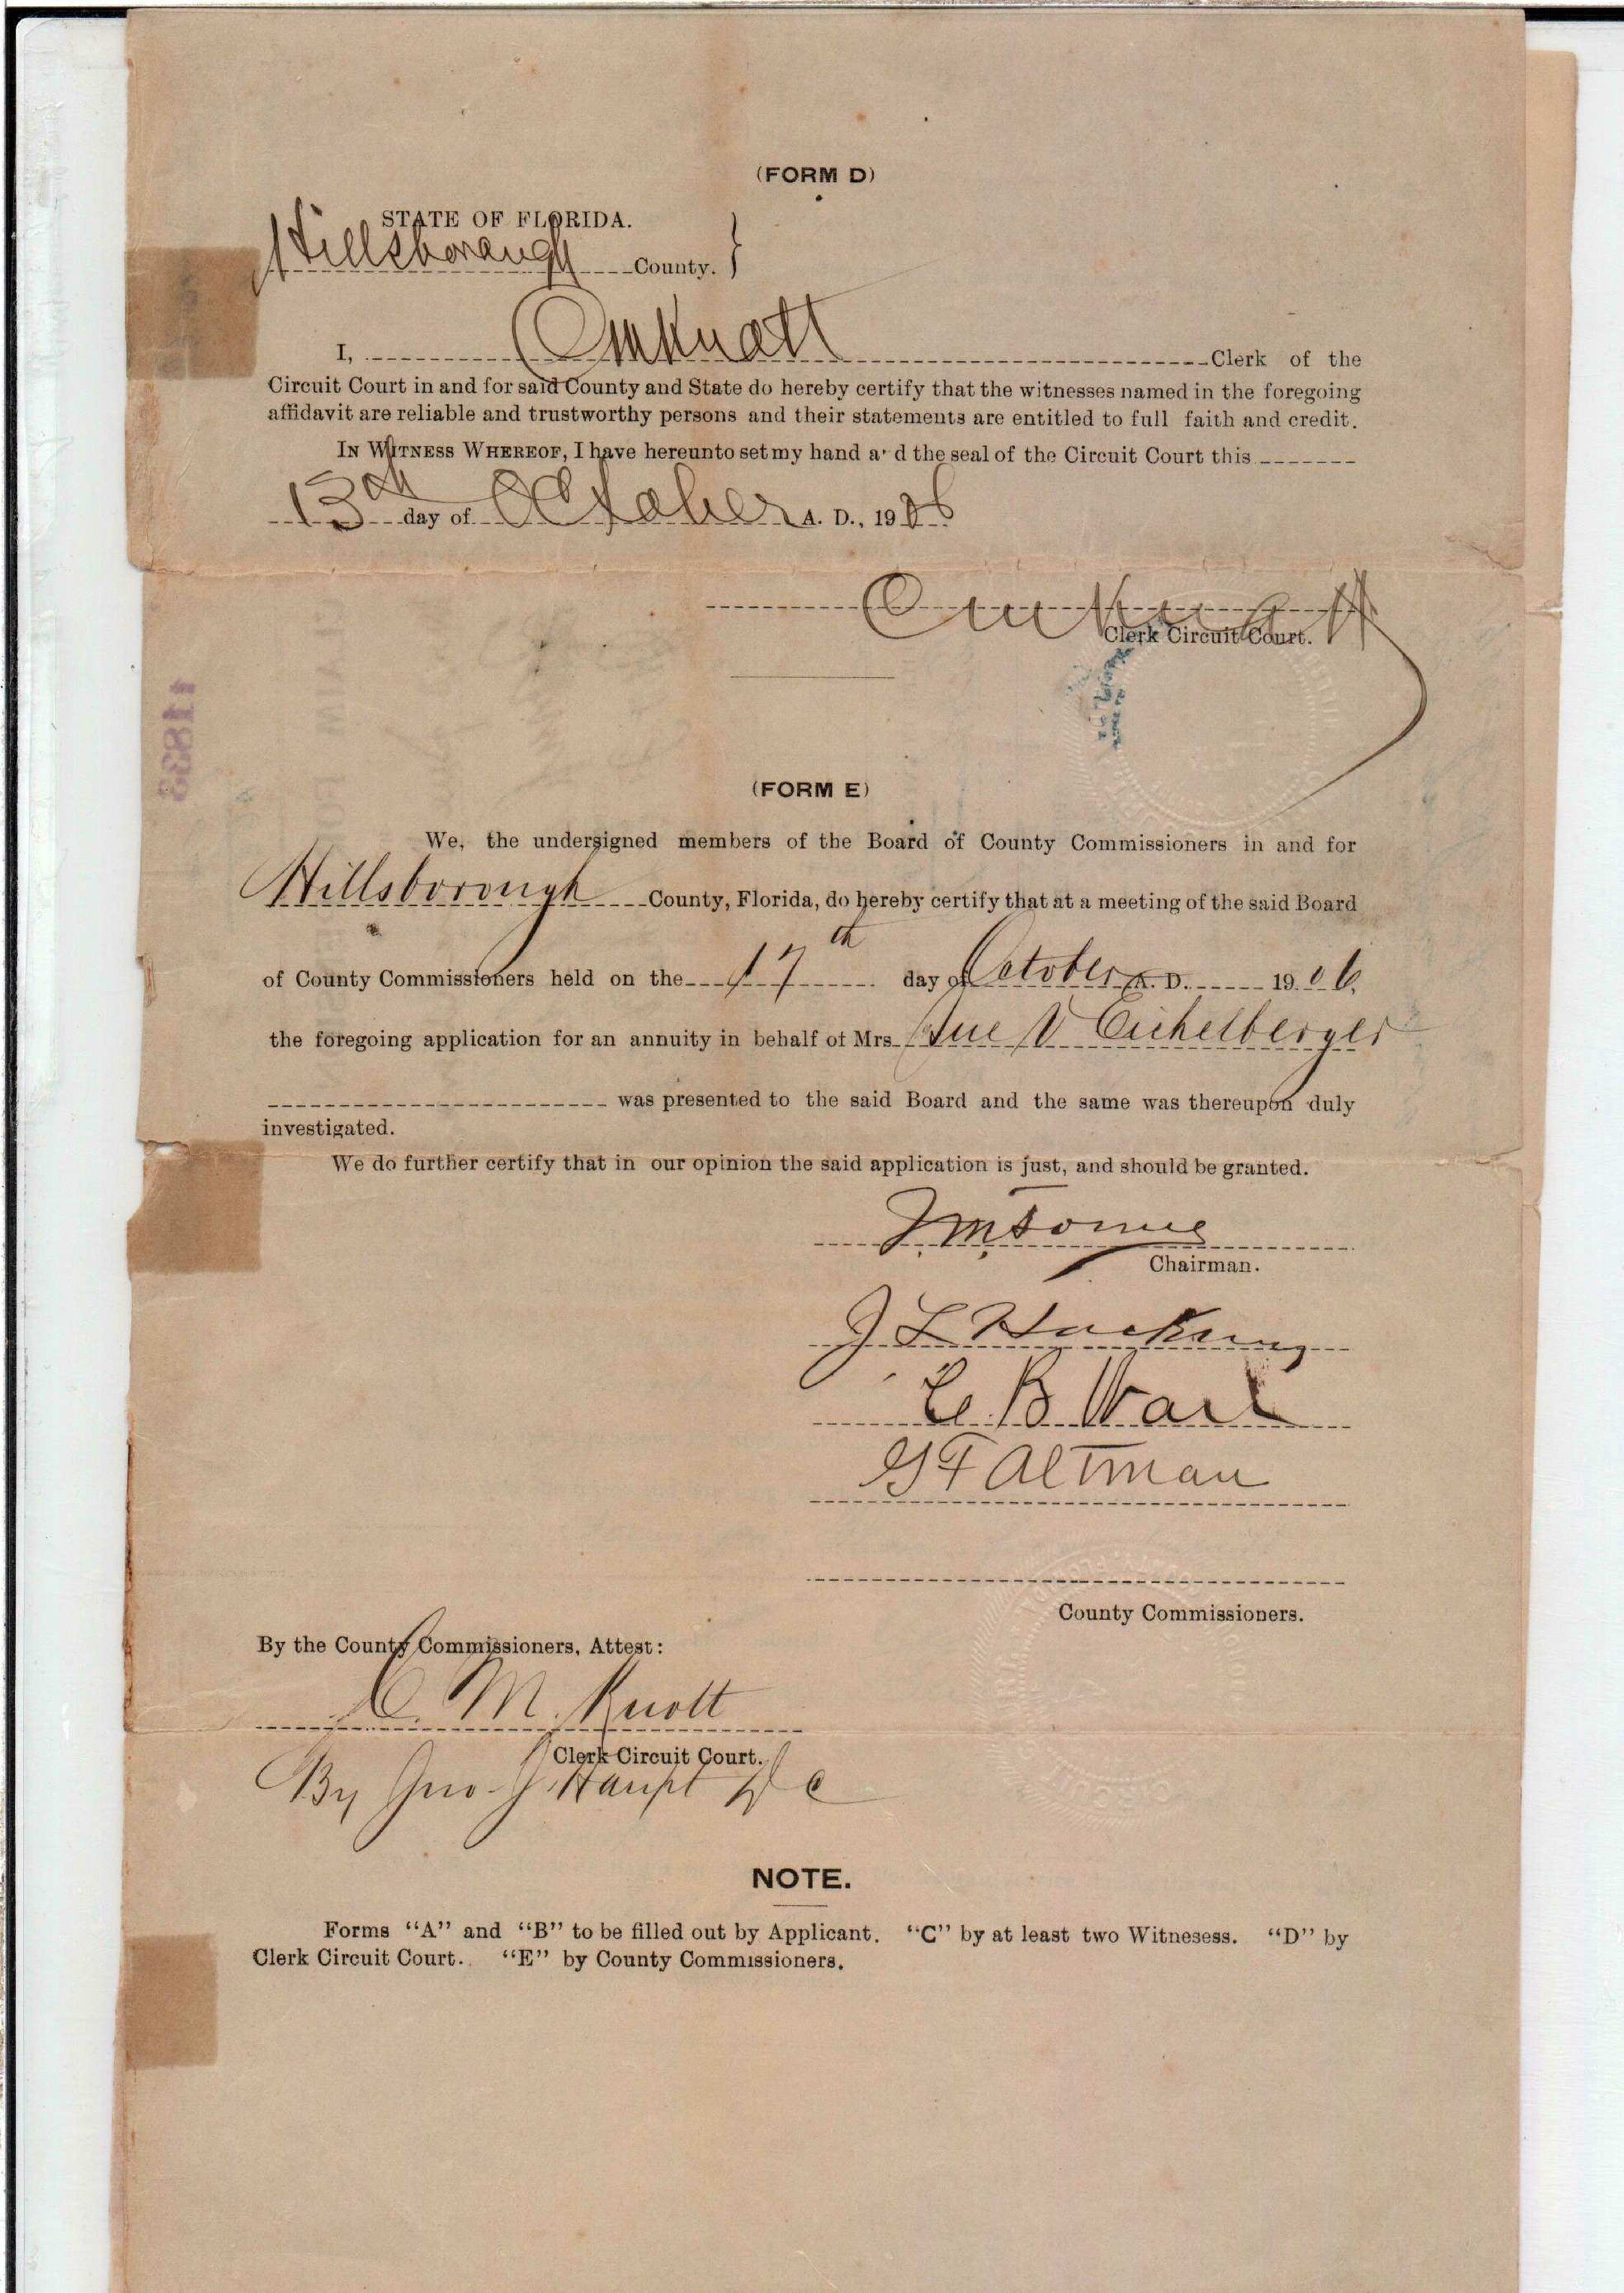 (FORM D)
STATE OF FLORIDA.
Hillsborough County. }
I, C M Knott Clerk of the
Circuit Court in and for said County and State do hereby certify that the witnesses named in the foregoing
affidavit are reliable and trustworthy persons and their statements are entitled to full faith and credit.
IN WITNESS WHEREOF, I have hereunto set my hand a d the seal of the Circuit Court this
13th day of October A. D., 1906
C M Knott
Clerk Circuit Court.
(FORM E)
We, the undersigned members of the Board of County Commissioners in and for
Hillsborough County, Florida, do hereby certify that at a meeting of the said Board
of County Commissioners held on the 17th day of October A. D. 1906.
the foregoing application for an annuity in behalf of Mrs Sue V Eichelberger
was presented to the said Board and the same was thereupon duly
investigated.
We do further certify that in our opinion the said application is just, and should be granted.
J. M.
Chairman.
J L
C. B. Wall
G F Altman
County Commissioners.
By the County Commissioners, Attest:
C. M. Knott
Clerk Circuit Court.
By Jno. J. Haupt D C
NOTE.
Forms “A” and “B” to be filled out by Applicant. “C” by at least two Witnesess. “D” by
Clerk Circuit Court. “E” by County Commissioners.